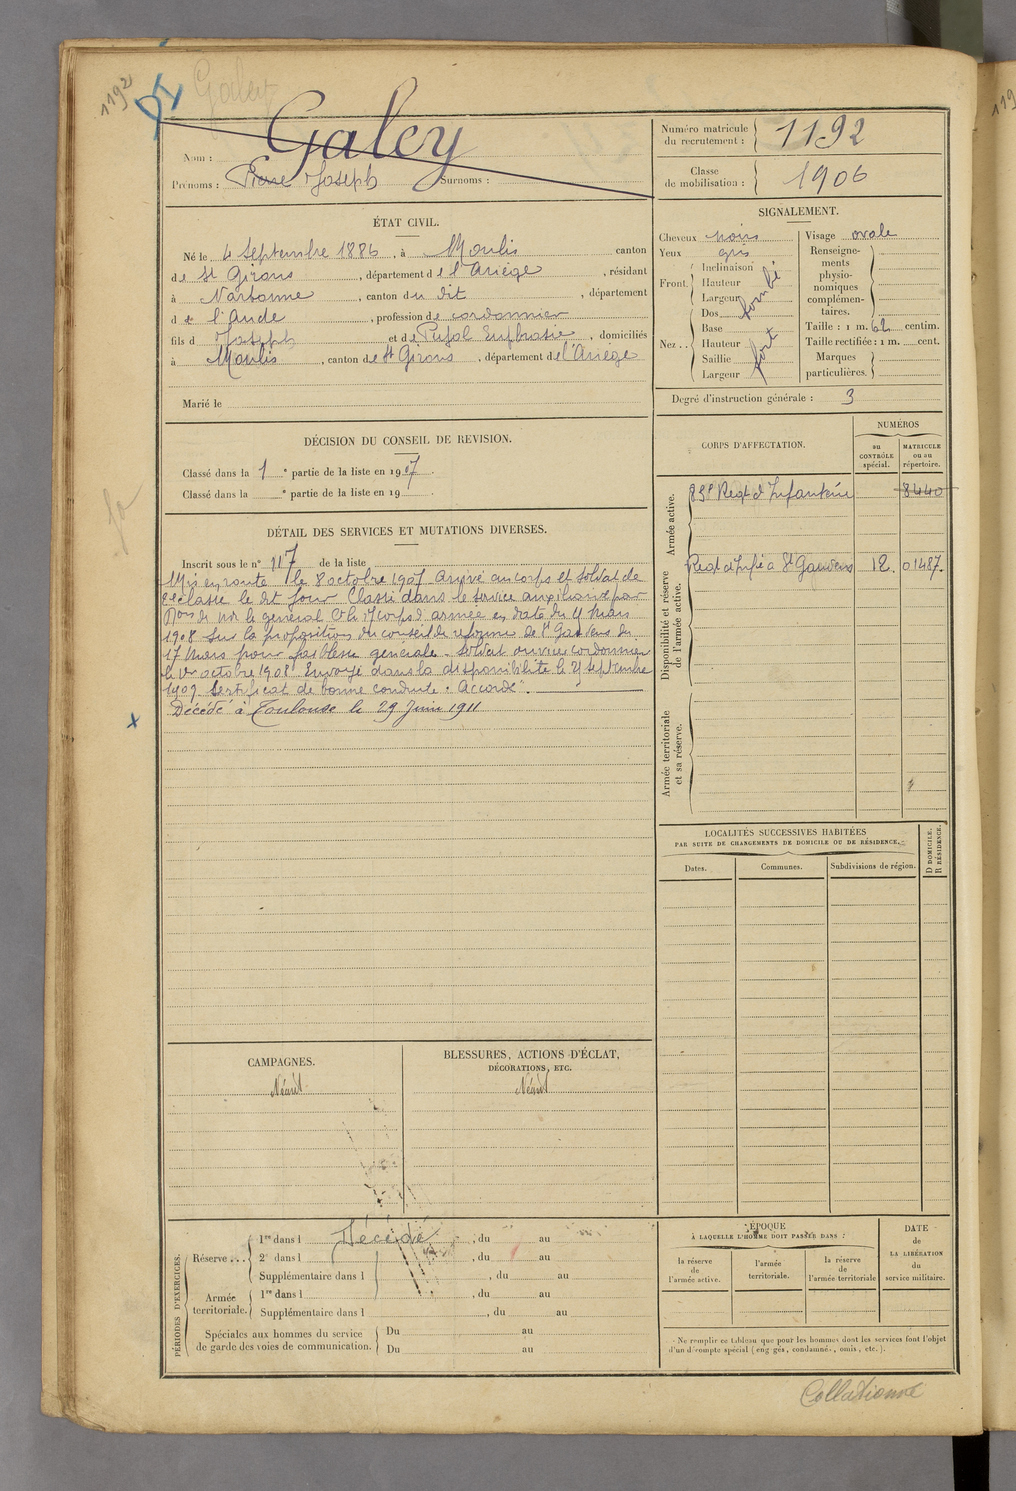 1192
Galey
Nom : Galey
Prénoms : Pierre Joseph Surnoms :
Numéro matricule du recrutement : 1192
Classe de mobilisation : 1906
ÉTAT CIVIL.
Né le 4 Septembre 1886, à Moulis canton
de St Girons, département de l'Ariège, résidant
à Narbonne, canton du dit, département
d de l'Aude, profession de cordonnier
fils d Joseph et de Pujol Euphrasie, domiciliés
à Moulis, canton de St Girons, département de l'Ariège
Marié le
SIGNALEMENT.
Cheveux noirs
Yeux gris
Front. Inclinaison
Hauteur
Largeur
bombé
Nez.. Dos
Base
Hauteur
Saillie
Largeur
fort
Visage ovale
Renseigne-
ments
physio-
nomiques
complémen-
taires.
Taille : 1 m. 62 centim.
Taille rectifiée : 1 m. cent.
Marques
particulières.
Degré d'instruction générale : 3
DÉCISION DU CONSEIL DE REVISION.
Classé dans la 1e partie de la liste en 1907.
Classé dans la e partie de la liste en 19
DÉTAIL DES SERVICES ET MUTATIONS DIVERSES.
Inscrit sous le n° 117 de la liste
Mis en route le 8 octobre 1907. Arrivé au corps et soldat de
2e classe le dit jour. Classé dans le service auxiliaire par
de Mr le général Ct le 17 corps d'armée en date du 4 Mars
1908 sur la proposition du conseil de réforme de St Gaudens du
17 Mars pour faiblesse générale. Soldat ouvrier cordonnier
le 1er octobre 1908. Envoyé dans la disponibilité le 25 septembre
1909. Certificat de bonne conduite "Accordé".
Décédé à Toulouse le 29 Juin 1911
CORPS D'AFFECTATION.
NUMÉROS
au
CONTRÔLE
spécial.
MATRICULE
ou au
répertoire.
Armée active.
83e Regt d'Infanterie 8440
Disponibilité et réserve
de l'armée active.
Regt d'Infie à St Gaudens 12. 01487.
Armée territoriale
et sa réserve.
LOCALITÉS SUCCESSIVES HABITÉES
PAR SUITE DE CHANGEMENTS DE DOMICILE OU DE RÉSIDENCE.
Dates.
Communes.
Subdivisions de région.
D DOMICILE.
R RÉSIDENCE.
CAMPAGNES.
Néant
BLESSURES, ACTIONS D'ÉCLAT,
DÉCORATIONS, ETC.
Néant
PÉRIODES D'EXERCICES.
Réserve ... 1re dans l Décédé, du au
2e dans l , du au
Supplémentaire dans l , du au
Armée
territoriale. 1re dans l , du au
Supplémentaire dans l , du au
Spéciales aux hommes du service
de garde des voies de communication.
Du au
Du au
ÉPOQUE
À LAQUELLE L'HOMME DOIT PASSER DANS :
la réserve
de
l'armée active.
l'armée
territoriale.
la réserve
de
l'armée territoriale
DATE
de
LA LIBÉRATION
du
service militaire.
Ne remplir ce tableau que pour les hommes dont les services font l'objet
d'un décompte spécial (engagés, condamnés, omis, etc.).
Collationné